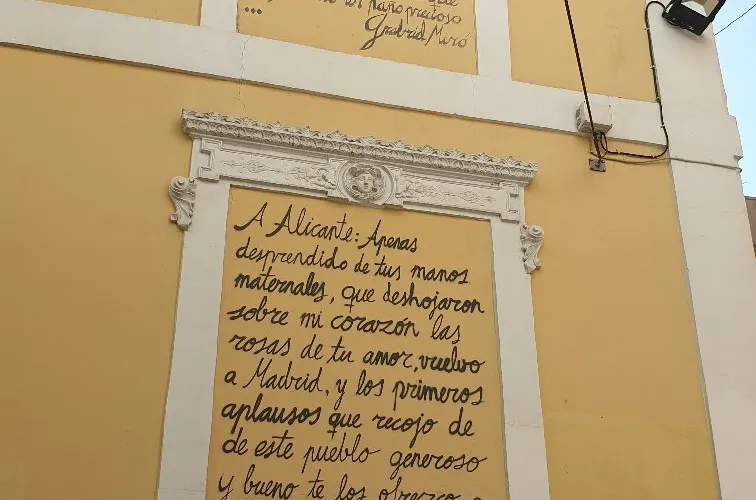 ...
paño precioso
Gabriel Miró
A Alicante: Apenas
desprendido de tus manos
maternales, que deshojaron
sobre mi corazón las
rosas de tu amor, vuelvo
a Madrid, y los primeros
aplausos que recojo de
de este pueblo generoso
y bueno te los ofrezco